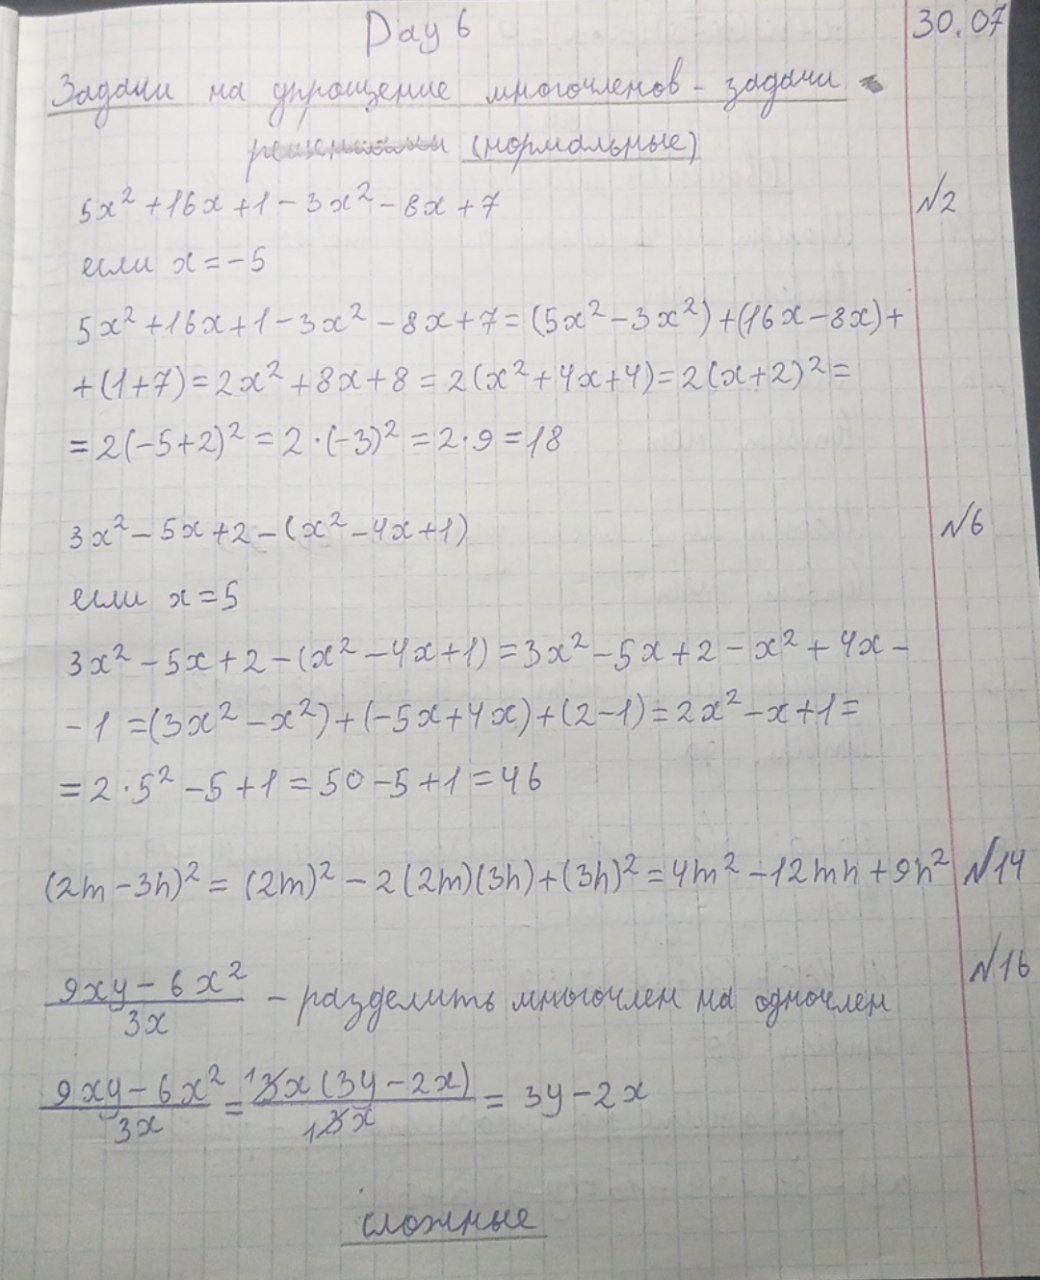 Day 6
30.07
Задачи на упрощение многочленов - задачи
(нормальные)
5x² + 16x + 1 - 3x² - 8x + 7
№2
если x = -5
5x² + 16x + 1 - 3x² - 8x + 7 = (5x² - 3x²) + (16x - 8x) +
+ (1 + 7) = 2x² + 8x + 8 = 2(x² + 4x + 4) = 2(x + 2)² =
= 2(-5 + 2)² = 2 · (-3)² = 2 · 9 = 18
3x² - 5x + 2 - (x² - 4x + 1)
№6
если x = 5
3x² - 5x + 2 - (x² - 4x + 1) = 3x² - 5x + 2 - x² + 4x -
- 1 = (3x² - x²) + (-5x + 4x) + (2 - 1) = 2x² - x + 1 =
= 2 · 5² - 5 + 1 = 50 - 5 + 1 = 46
(2m - 3n)² = (2m)² - 2(2m)(3n) + (3n)² = 4m² - 12mn + 9n²
№14
№16
9xy - 6x² / 3x - разделить многочлен на одночлен
9xy - 6x² / 3x = ¹3x(3y - 2x) / ₁3x = 3y - 2x
сложные